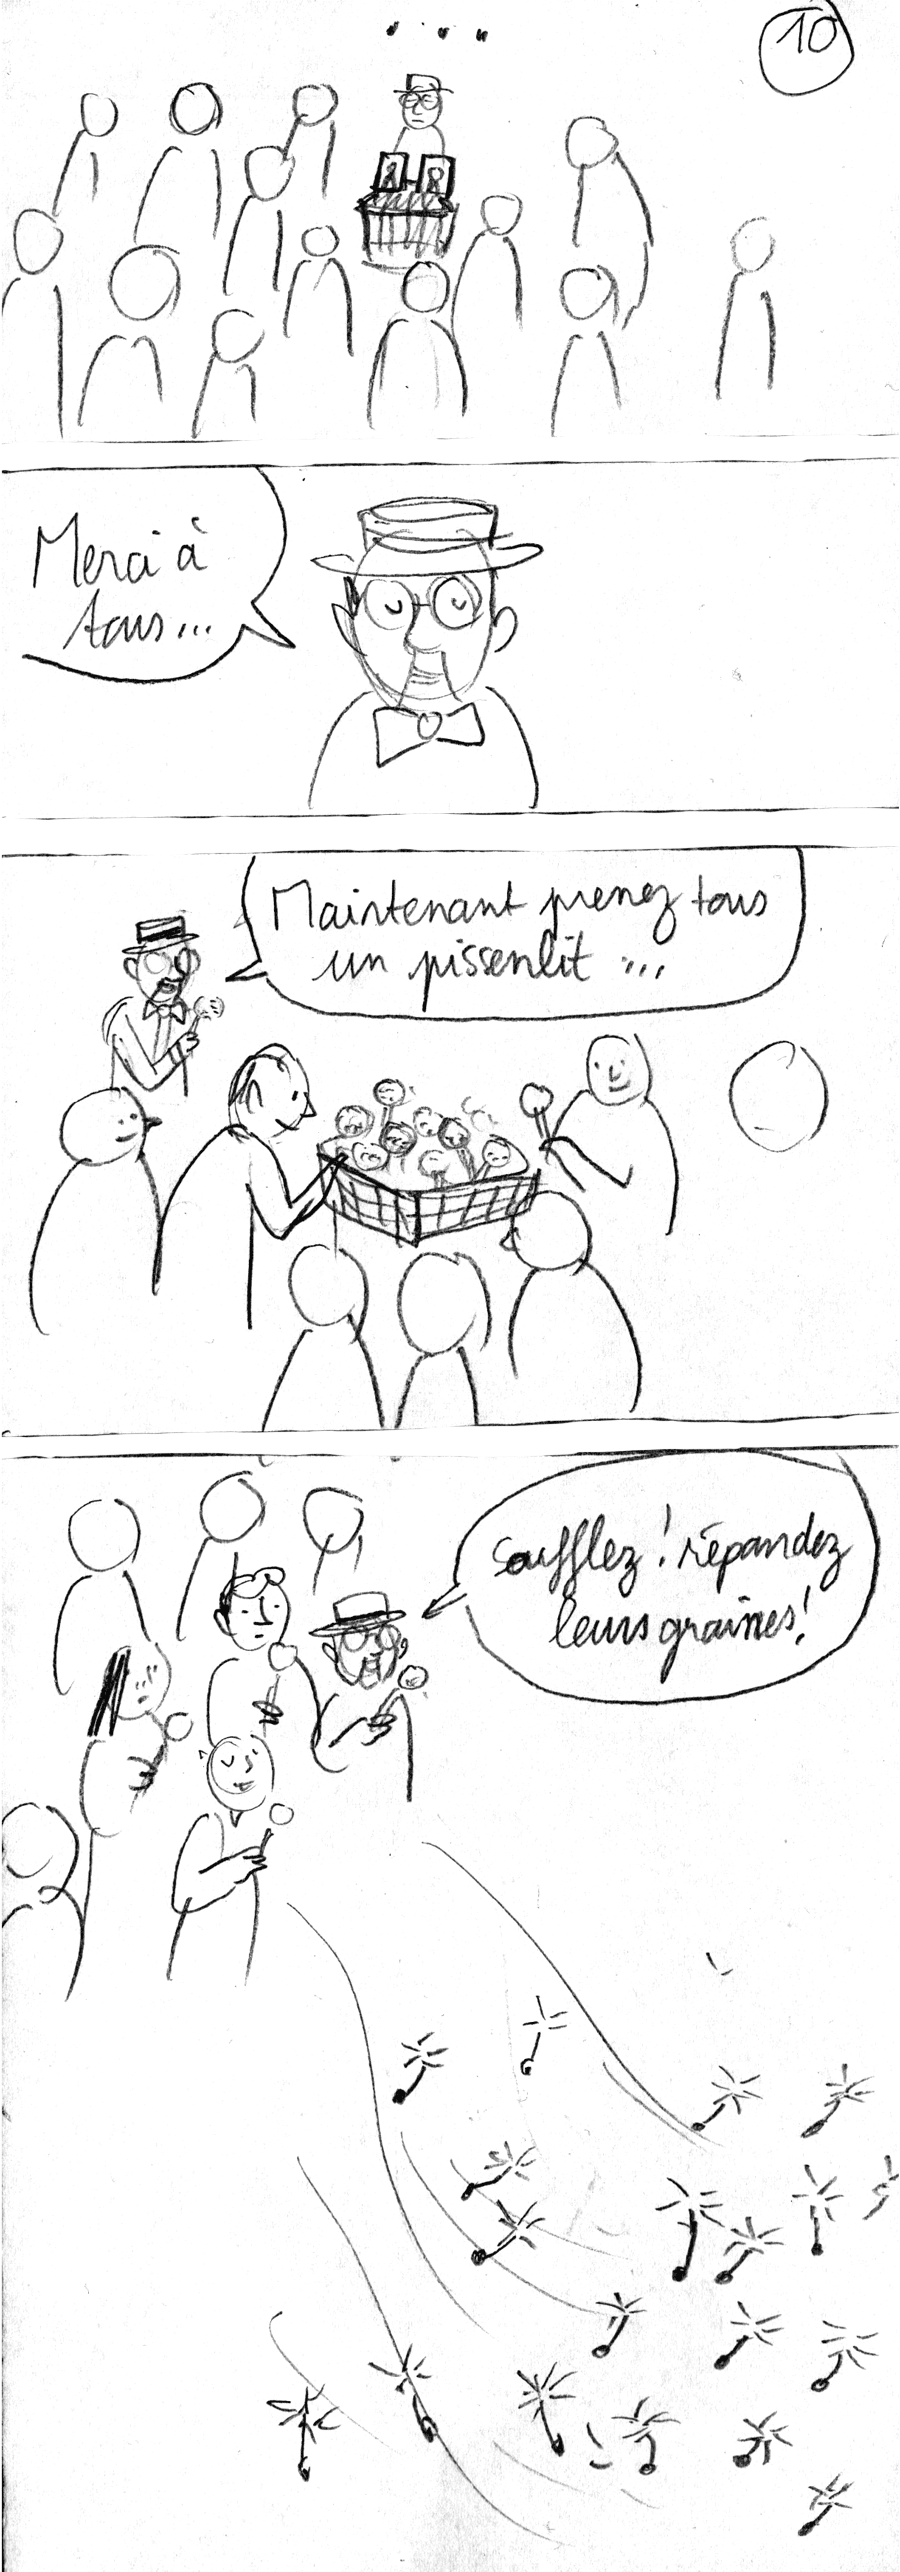 ...
10
Merci à
tous...
Maintenant prenez tous
un pissenlit...
Soufflez! répandez
leurs graines!